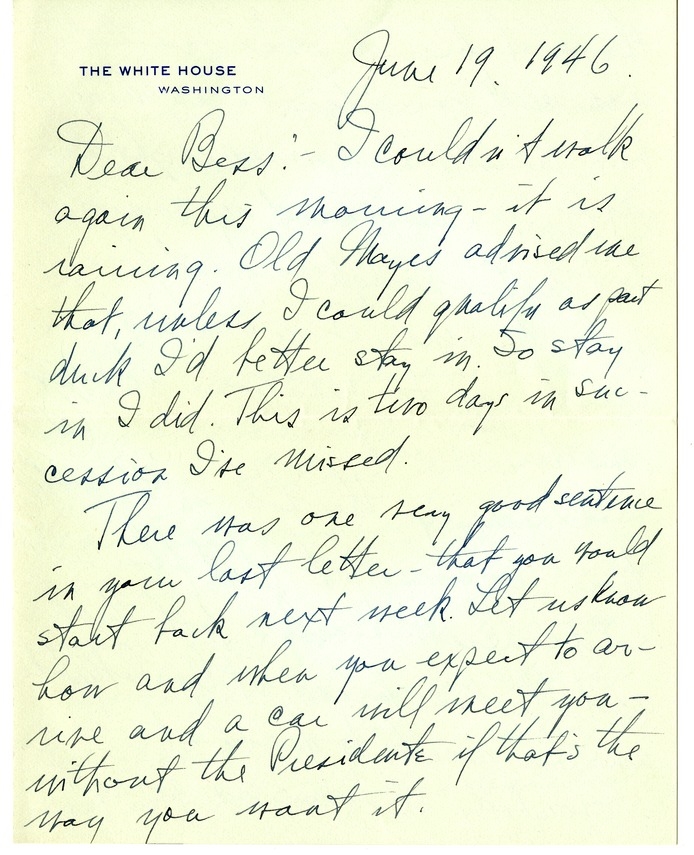 THE WHITE HOUSE
WASHINGTON
June 19, 1946.
Dear Bess:- I couldn't walk
again this morning - it is
raining. Old Mayes advised me
that, unless I could qualify as part
duck I'd better stay in. So stay
in I did. This is two days in suc-
cession I've missed.
There was one very good sentence
in your last letter - that you would
start back next week. Let us know
how and when you expect to ar-
rive and a car will meet you -
without the President if that's the
way you want it.